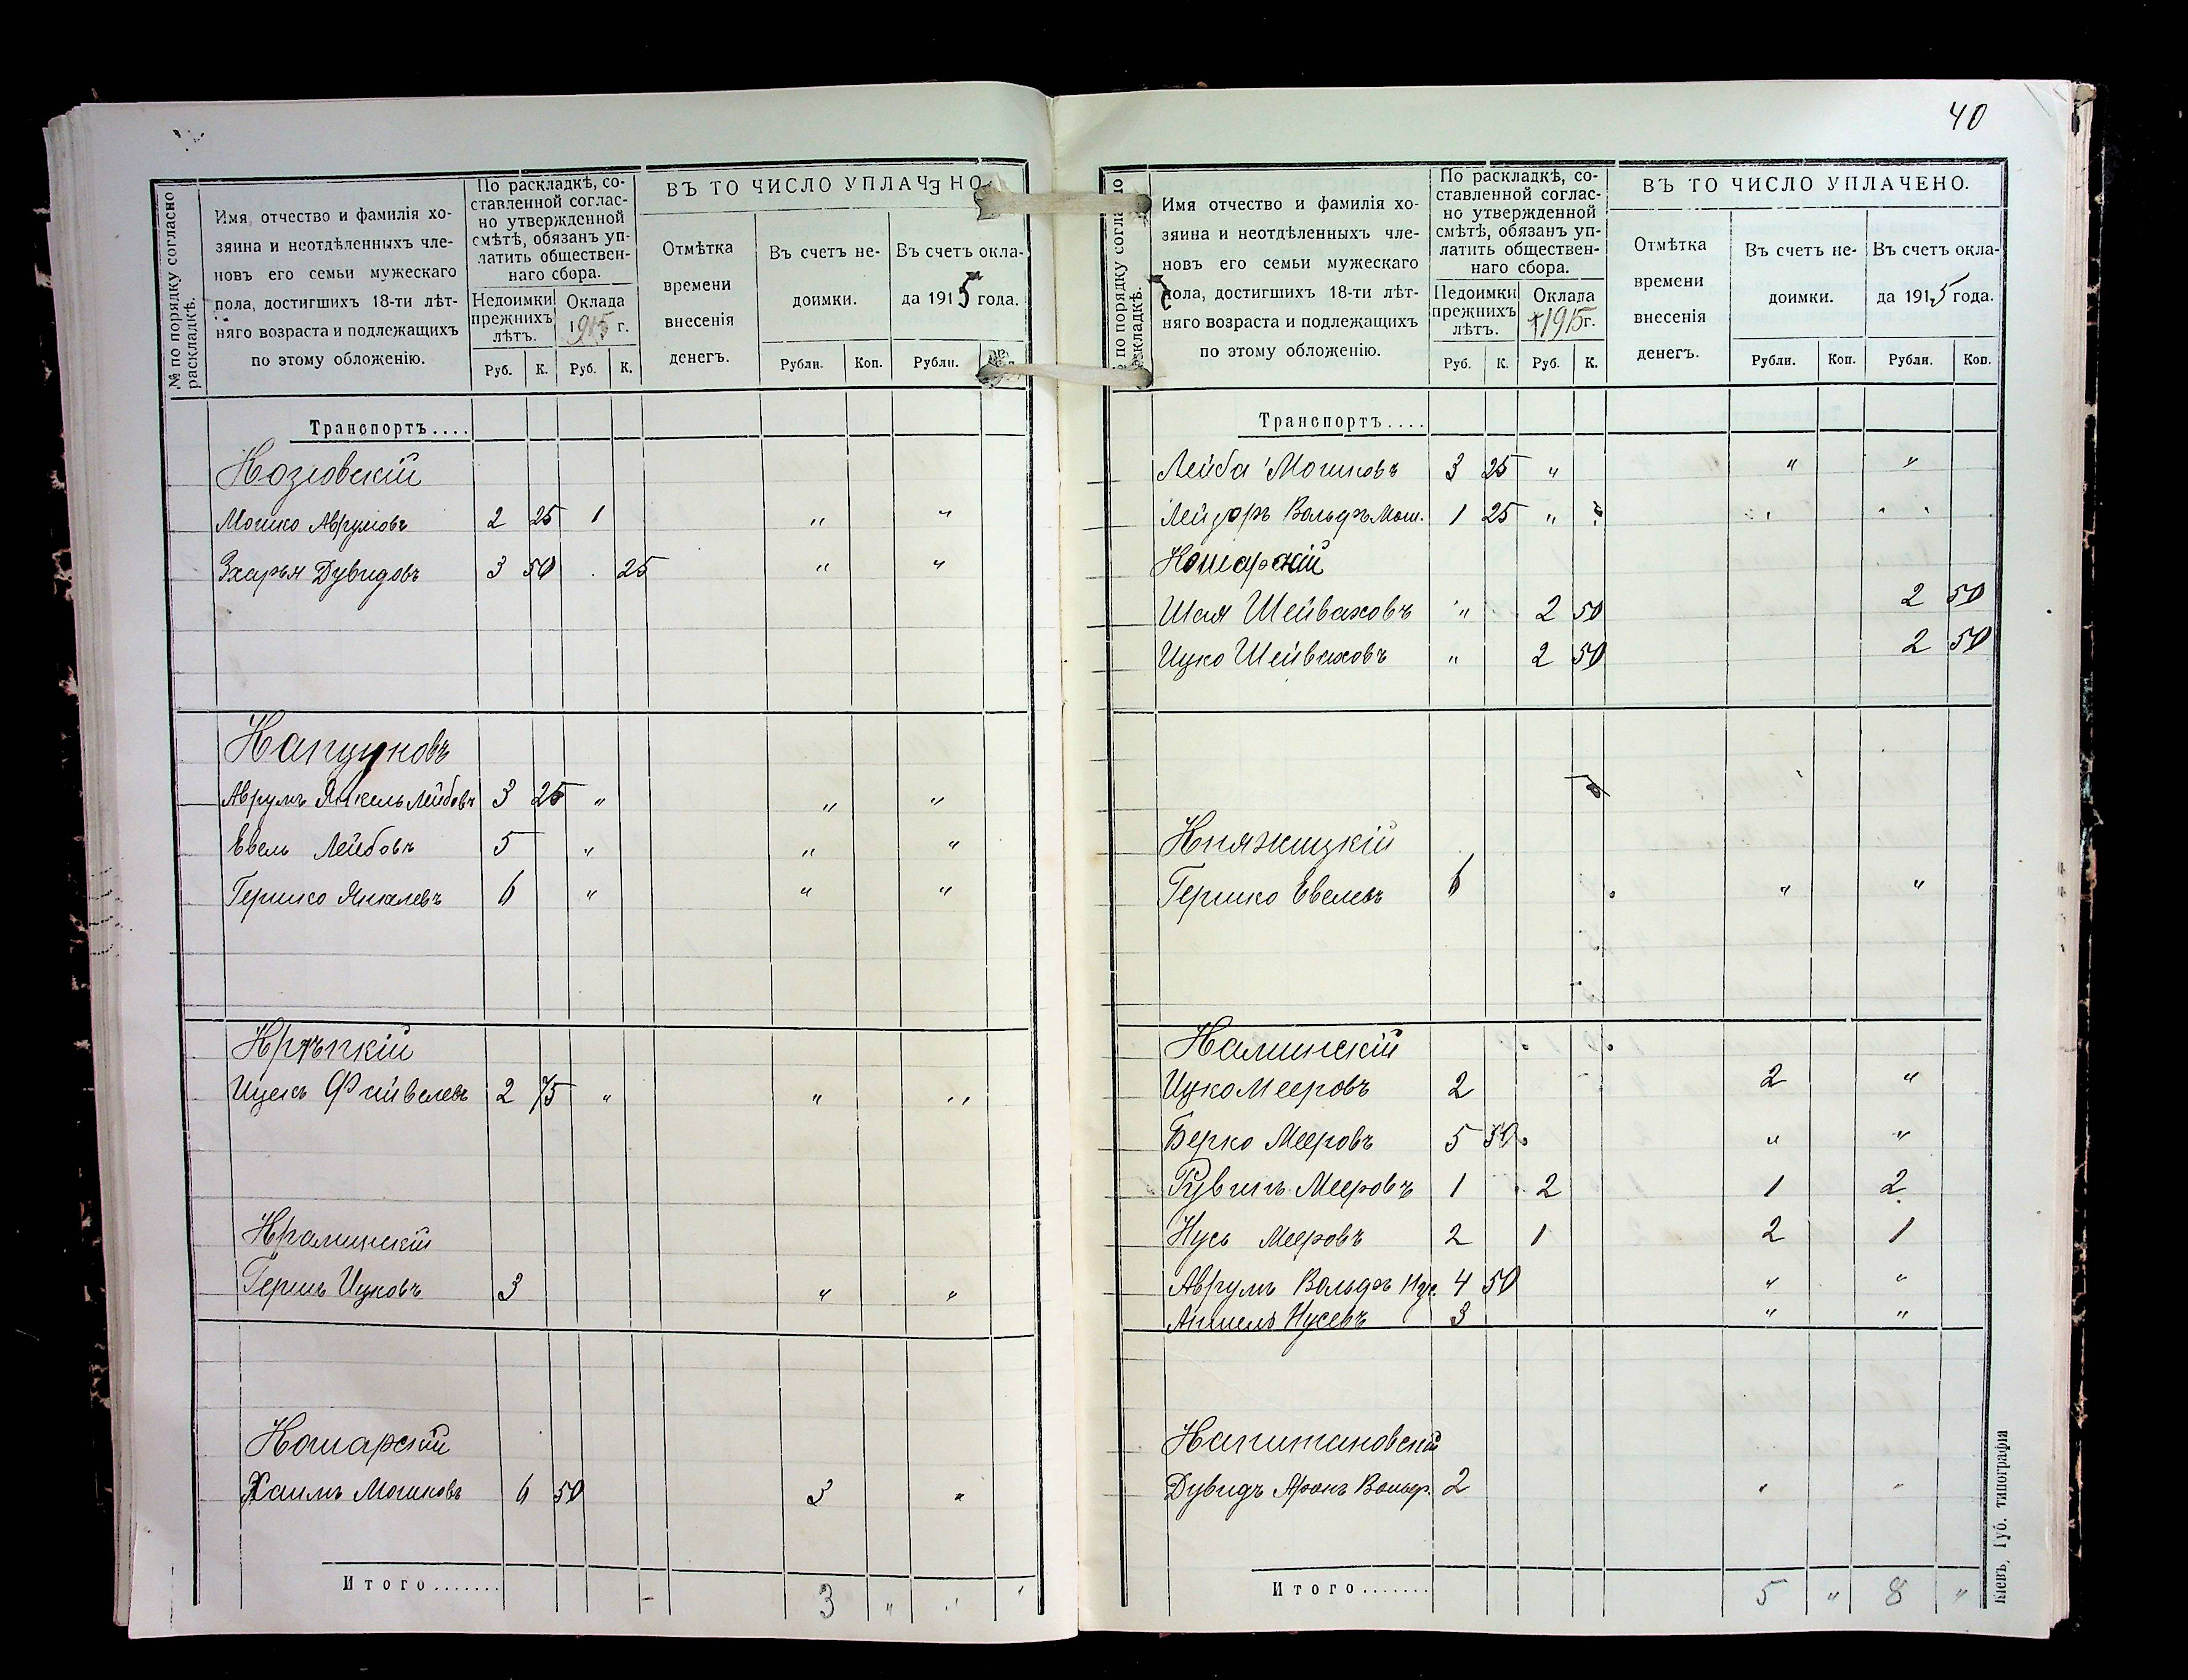 40
№ по порядку согласно раскладкѣ.
Имя, отчество и фамилія хо-
зяина и неотдѣленныхъ чле-
новъ его семьи мужескаго
пола, достигшихъ 18-ти лѣт-
няго возраста и подлежащихъ
по этому обложенію.
По раскладкѣ, со-
ставленной соглас-
но утвержденной
смѣтѣ, обязанъ уп-
латить обществен-
наго сбора.
Недоимки прежнихъ лѣтъ.
Оклада 1915 г.
Руб. К. Руб. К.
ВЪ ТО ЧИСЛО УПЛАЧЕНО.
Отмѣтка
времени
внесенія
денегъ.
Въ счетъ не-
доимки.
Въ счетъ окла-
да 1915 года.
Рубли. Коп. Рубли.
Транспортъ....
Козловскій
Мошко Аврумовъ 2 25 1 " "
Зхарья Дувидовъ 3 50 . 25 " "
Капцуновъ
Аврумъ Янкель Лейбовъ 3 25 " " "
Евель Лейбовъ 5 " " "
Гершко Янкелевъ 6 " " "
Крѣпкій
Ицекъ Файвелевъ 2 75 " " "
Кралицкій
Гершъ Ицковъ 3 " "
Кошарскій
Хаимъ Мошковъ 6 50 3 "
Итого....... 3 " "
по порядку согласно раскладкѣ.
Имя отчество и фамилія хо-
зяина и неотдѣленныхъ чле-
новъ его семьи мужескаго
пола, достигшихъ 18-ти лѣт-
няго возраста и подлежащихъ
по этому обложенію.
По раскладкѣ, со-
ставленной соглас-
но утвержденной
смѣтѣ, обязанъ уп-
латить обществен-
наго сбора.
Недоимки прежнихъ лѣтъ.
Оклада 1915 г.
Руб. К. Руб. К.
ВЪ ТО ЧИСЛО УПЛАЧЕНО.
Отмѣтка
времени
внесенія
денегъ.
Въ счетъ не-
доимки.
Въ счетъ окла-
да 1915 года.
Рубли. Коп. Рубли. Коп.
Транспортъ....
Лейба Мошковъ 3 25 " " "
Лейзоръ Вольфъ Мош. 1 25 "
Кошарскій
Шая Шейваховъ " 2 50 2 50
Ицко Шейваховъ " 2 50 2 50
Княжицкій
Гершко Евелевъ 6 " "
Калинскій
Ицко Мееровъ 2 2 "
Берко Мееровъ 5 50 " "
Рувинъ Мееровъ 1 2 1 2
Нусь Мееровъ 2 1 2 1
Аврумъ Вольфъ Нус. 4 50 " "
Аншель Нусевъ 3 " "
Капитановскій
Дувидъ Аронъ Вольф. 2
Итого....... 5 " 8 "
Кіевъ, Губ. типографія